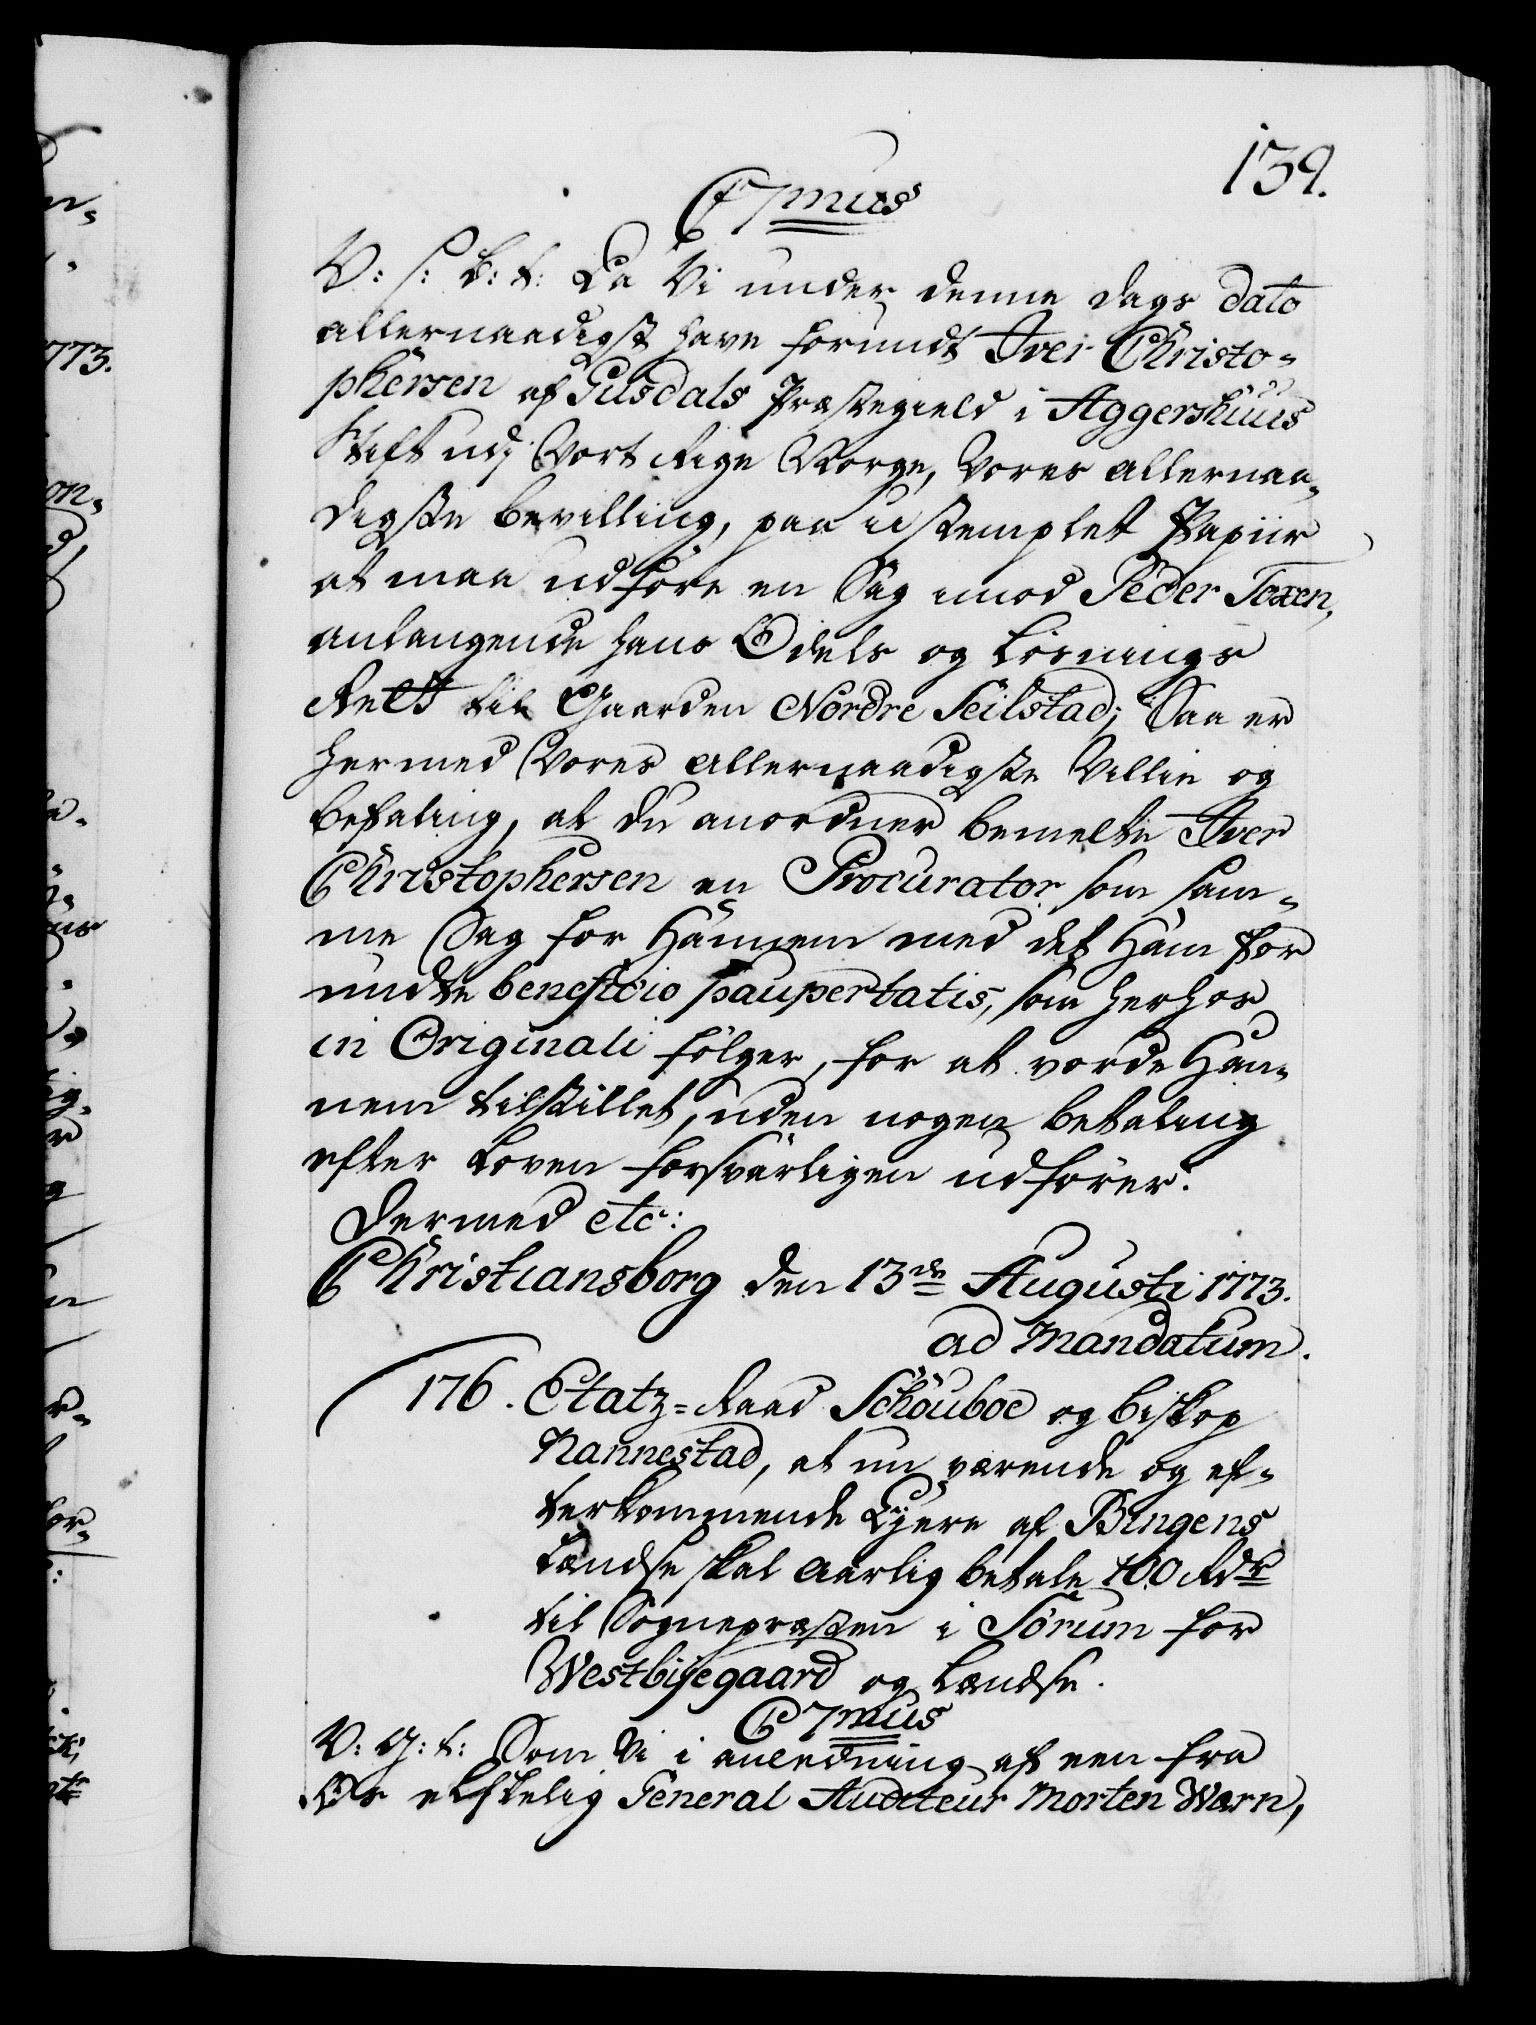 139.
C7mus
V: s: B: t: Da Vi under denne Dags Dato
allernaadigst have forundt Iver Christo-
phersen af Gusdals Præstegield i Aggershuus
Stift udj Vort Rige Norge, Vores allernaa-
digste Bevilling, paa ustemplet Papiir
at maa udføre en Sag imod Peder Toxen,
anlangende hans Odels og Løsnings
Rett til Gaarden Nordre Seilstad; Saa er
hermed Vores allernaadigste Villie og
Befaling, at du anordner bemelte Iver
Christophersen en Procurator som sam-
me Sag for Hannem med det Ham for
undte beneficio paupertatis, som herhos
in Originali følger, for at vorde Han-
nem tilstillet, uden nogen betaling
efter Loven forsvarligen udfører.
Dermed etc:
Christiansborg den 13de Augusti 1773.
ad Mandatum.
176. Etatz-Raad Schouboe og Biskop
Nannestad, at nu værende og ef-
terkommende Eyere af Bingens
Lændse skal aarlig betale 100 Rdr
til Sognepræsten i Sørum for
Westbyegaard og Lændse.
C7mus
V: G: t: Som Vi i anledning af een fra
Os elskelig General Auditeur Morten Wærn,